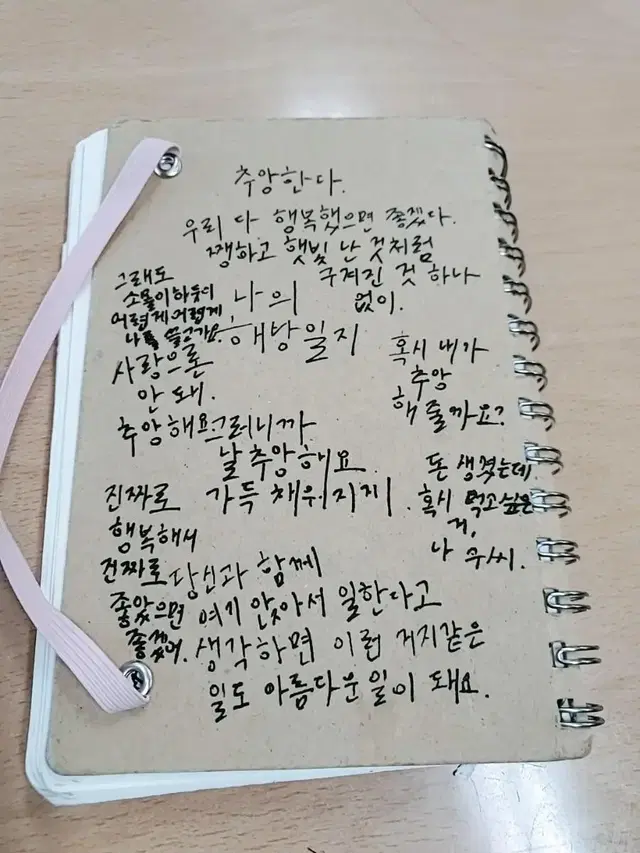 추앙한다.
우리 다 행복했으면 좋겠다.
쨍하고 햇빛 난 것처럼
구겨진 것 하나
없이.
그래도
소몰이하듯이
어렵게 어렵게
나를 끌고가요.
나의
해방일지
사랑으론
안 돼.
추앙해요.
혹시 내가
추앙
해 줄까요?
그러니까
날 추앙해요
가득 채워지게.
돈 생겼는데,
혹시 먹고싶은
거,
나 구씨.
진짜로
행복해서
진짜로
좋았으면
좋겠어.
당신과 함께
여기 앉아서 일한다고
생각하면 이런 거지같은
일도 아름다운 일이 돼요.